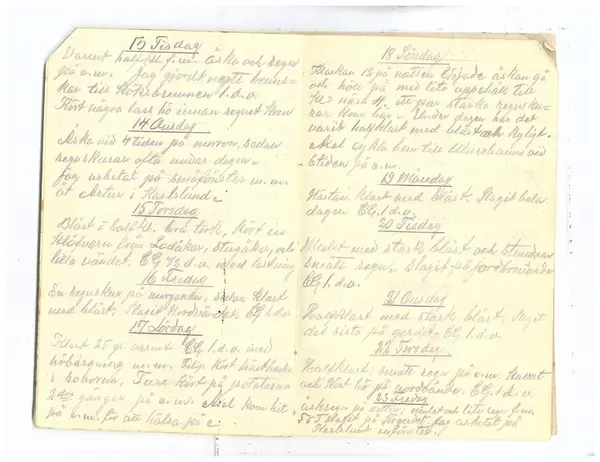 13 Tisdag
Varmt halfkl. f.m. åska och regn
på e.m. Jag gjordt nytt
kar till 1. d.v.
Kört några lass hö innan regnet kom
14 Onsdag
Åska vid 4 tiden på morron, sedan
regnskurar ofta under dagen.
Jag arbetat på småfönster m.m.
åt Artur i Karlslund.
15 Torsdag
Blåst o halfkl. bra tork, kört in
klöfvern från Ladåker, Storåker, och
lilla vändet. EG ½ d.v. med lastning
16 Fredag
En regnskur på morgonen, sedan klart
med blåst. Slagit Nordvändet. EG 1 d.v
17 Lördag
Klart 25 gr. varmt EG 1. d.v. med
höbärgning m.m. Filip kört hästhacka
i hoborna. Ture kört på potatisen
2 dor gånger på e.m. Axel kom hit
på e.m. för att hälsa på
18 Söndag
Klockan 12 på natten började åskan gå
och höll på med lite uppehåll till
kl. noro 4. ett par starka regnsku-
rar kom här. Under dagen har det
varit halfklart med blåst och kyligt.
Axel cykla hem till Ulricehamn vid
6 tiden på e.m.
19 Måndag
Nästan klart med blåst. Slagit hela
dagen EG. 1 d.v.
20 Tisdag
Mulet med stark blåst och stundom
smått regn. Slagit på
EG 1. d.v.
21 Onsdag
Halfklart med stark blåst. Slagit
det sista på gärdet. EG 1. d.v.
22 Torsdag
Halfklart. smått regn på e.m. Harvat
och kört hö på nordvände. EG. 1 d.v
23 Fredag
åskregn på natten, mulet och lite regn f.m.
EG slagit på Jag arbetat på
Karlslund